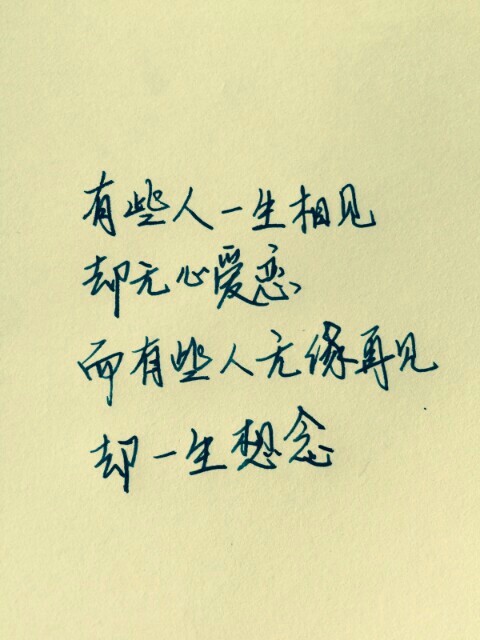 有些人一生相见
却无心爱恋
而有些人无缘再见
却一生想念